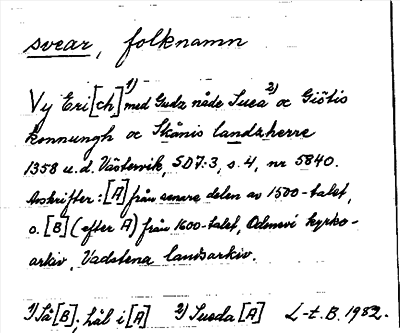 svear, folknamn
Vy Eri[ch]¹⁾ med Gudz nåde Suea²⁾ oc Giötis
konnungh oc Skånis landzherre
1358 u.d. Västervik, SD 7:3, s. 4, nr 5840.
Avskrifter: [A] från senare delen av 1500-talet,
o. [B] (efter A) från 1600-talet, Odensvi kyrko-
arkiv, Vadstena landsarkiv.
1) Så [B]; hål i [A] 2) Sueda [A] L-t. B. 1982.